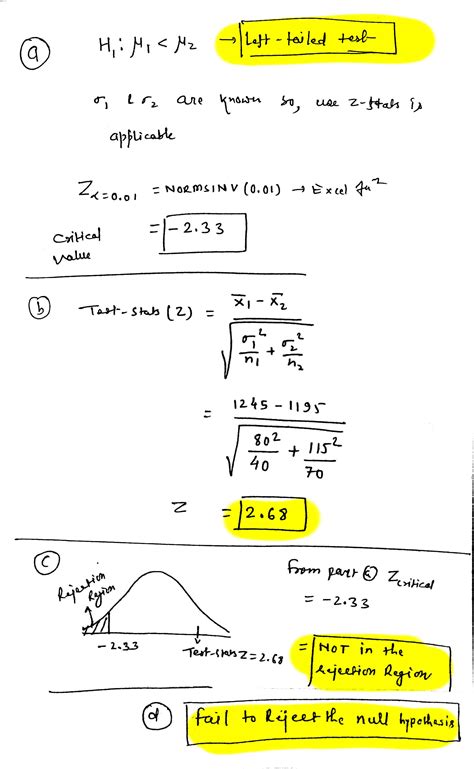 (a) H₁: μ₁ < μ₂ → Left-tailed test
σ₁ & σ₂ are known so, use z-stats is
applicable
Z α=0.01 = NORMSINV(0.01) → Excel fuⁿ
Critical value = -2.33
(b) Test-stats (Z) = x̄₁ - x̄₂ / √(σ₁²/n₁ + σ₂²/n₂)
= 1245 - 1195 / √(80²/40 + 115²/70)
Z = 2.68
(c) Rejection Region
-2.33
Test-stats Z = 2.68
from part (a) Zcritical
= -2.33
= NOT in the
Rejection Region
(d) fail to Reject the null hypothesis